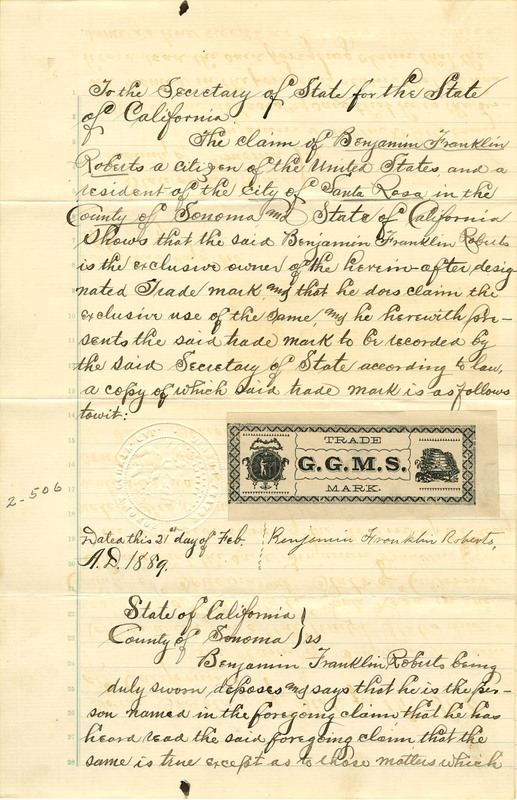 To the Secretary of State for the State
of California.
The claim of Benjamin Franklin
Roberts a citizen of the United States, and a
resident of the City of Santa Rosa in the
County of Sonoma and State of California
Shows that the said Benjamin Franklin Roberts
is the exclusive owner of the herein-after desig-
nated Trade mark, and that he does claim the
exclusive use of the same, and he herewith pre-
sents the said trade mark to be recorded by
the said Secretary of State according to law,
a copy of which said trade mark is as follows
towit:
TRADE
G.G.M.S.
MARK.
2-506
Dated this 21st day of Feb.
A.D. 1889.
Benjamin Franklin Roberts,
State of California
County of Sonoma } ss
Benjamin Franklin Roberts being
duly sworn, deposes and says that he is the per-
son named in the foregoing claim that he has
heard read the said foregoing claim that the
same is true except as to those matters which